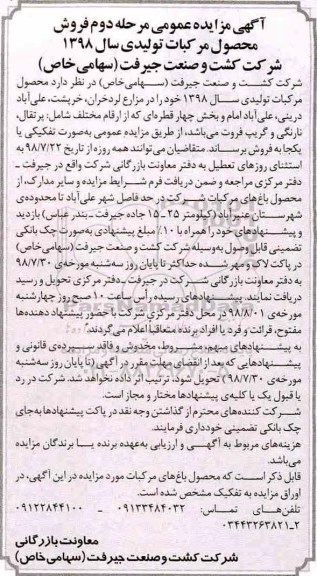 آگهی مزایده عمومی مرحله دوم فروش
محصول مرکبات تولیدی سال ۱۳۹۸
شرکت کشت و صنعت جیرفت (سهامی خاص)
شرکت کشت و صنعت جیرفت (سهامی خاص) در نظر دارد محصول
مرکبات تولیدی سال ۱۳۹۸ خود را در مزارع لردخران، خریشت، علی‌آباد
درینی، علی‌آباد امام و بخش چهار قطره‌ای که از ارقام مختلف شامل: پرتقال،
نارنگی و گریپ فروت می‌باشد، از طریق مزایده عمومی به‌صورت تفکیکی یا
یکجا به فروش برساند. متقاضیان می‌توانند همه روزه از تاریخ ۹۸/۷/۲۲ به
استثنای روزهای تعطیل به دفتر معاونت بازرگانی شرکت واقع در جیرفت ـ
دفتر مرکزی مراجعه و ضمن دریافت فرم شرایط مزایده و سایر مدارک، از
محصول باغ‌های مرکبات شرکت در حد فاصل شهر علی‌آباد تا محدوده‌ی
شهرستان عنبرآباد (کیلومتر ۲۵ ـ ۱۵ جاده جیرفت ـ بندرعباس) بازدید
و پیشنهادهای خود را همراه با ۱۰٪ مبلغ پیشنهادی به‌صورت چک بانکی
تضمینی قابل وصول به‌وسیله شرکت کشت و صنعت جیرفت (سهامی خاص)
در پاکت لاک و مهر شده حداکثر تا پایان روز سه‌شنبه مورخه‌ی ۹۸/۷/۳۰
به دفتر معاونت بازرگانی شرکت در جیرفت ـ دفتر مرکزی تحویل و رسید
دریافت نمایند. پیشنهادهای رسیده رأس ساعت ۱۰ صبح روز چهارشنبه
مورخه‌ی ۹۸/۸/۰۱ در محل دفتر مرکزی شرکت با حضور پیشنهاد دهنده‌ها
مفتوح، قرائت و فرد یا افراد برنده متعاقبا اعلام می‌گردند.
به پیشنهادهای مبهم، مشروط، مخدوش و فاقد سپرده‌ی قانونی و
پیشنهادهایی که بعد از انقضای مهلت مقرر در آگهی (تا پایان روز سه‌شنبه
مورخه‌ی ۹۸/۷/۳۰) تحویل شود، ترتیب اثر داده نخواهد شد. شرکت در رد
یا قبول یک یا کلیه‌ی پیشنهادها مختار و مجاز است.
شرکت کننده‌های محترم از گذاشتن وجه نقد در پاکت پیشنهادها به‌جای
چک بانکی تضمینی خودداری فرمایند.
هزینه‌های مربوط به آگهی و ارزیابی به‌عهده برنده یا برندگان مزایده
می‌باشد.
قابل ذکر است که محصول باغ‌های مرکبات مورد مزایده در این آگهی، در
اوراق مزایده به تفکیک مشخص شده است.
تلفن‌های تماس: ۰۹۱۳۳۴۸۴۰۳۲ ـ ۰۹۱۲۲۸۴۴۱۰۰ ـ
۰۳۴۴۳۲۶۳۸۲۱-۲
معاونت بازرگانی
شرکت کشت و صنعت جیرفت (سهامی خاص)